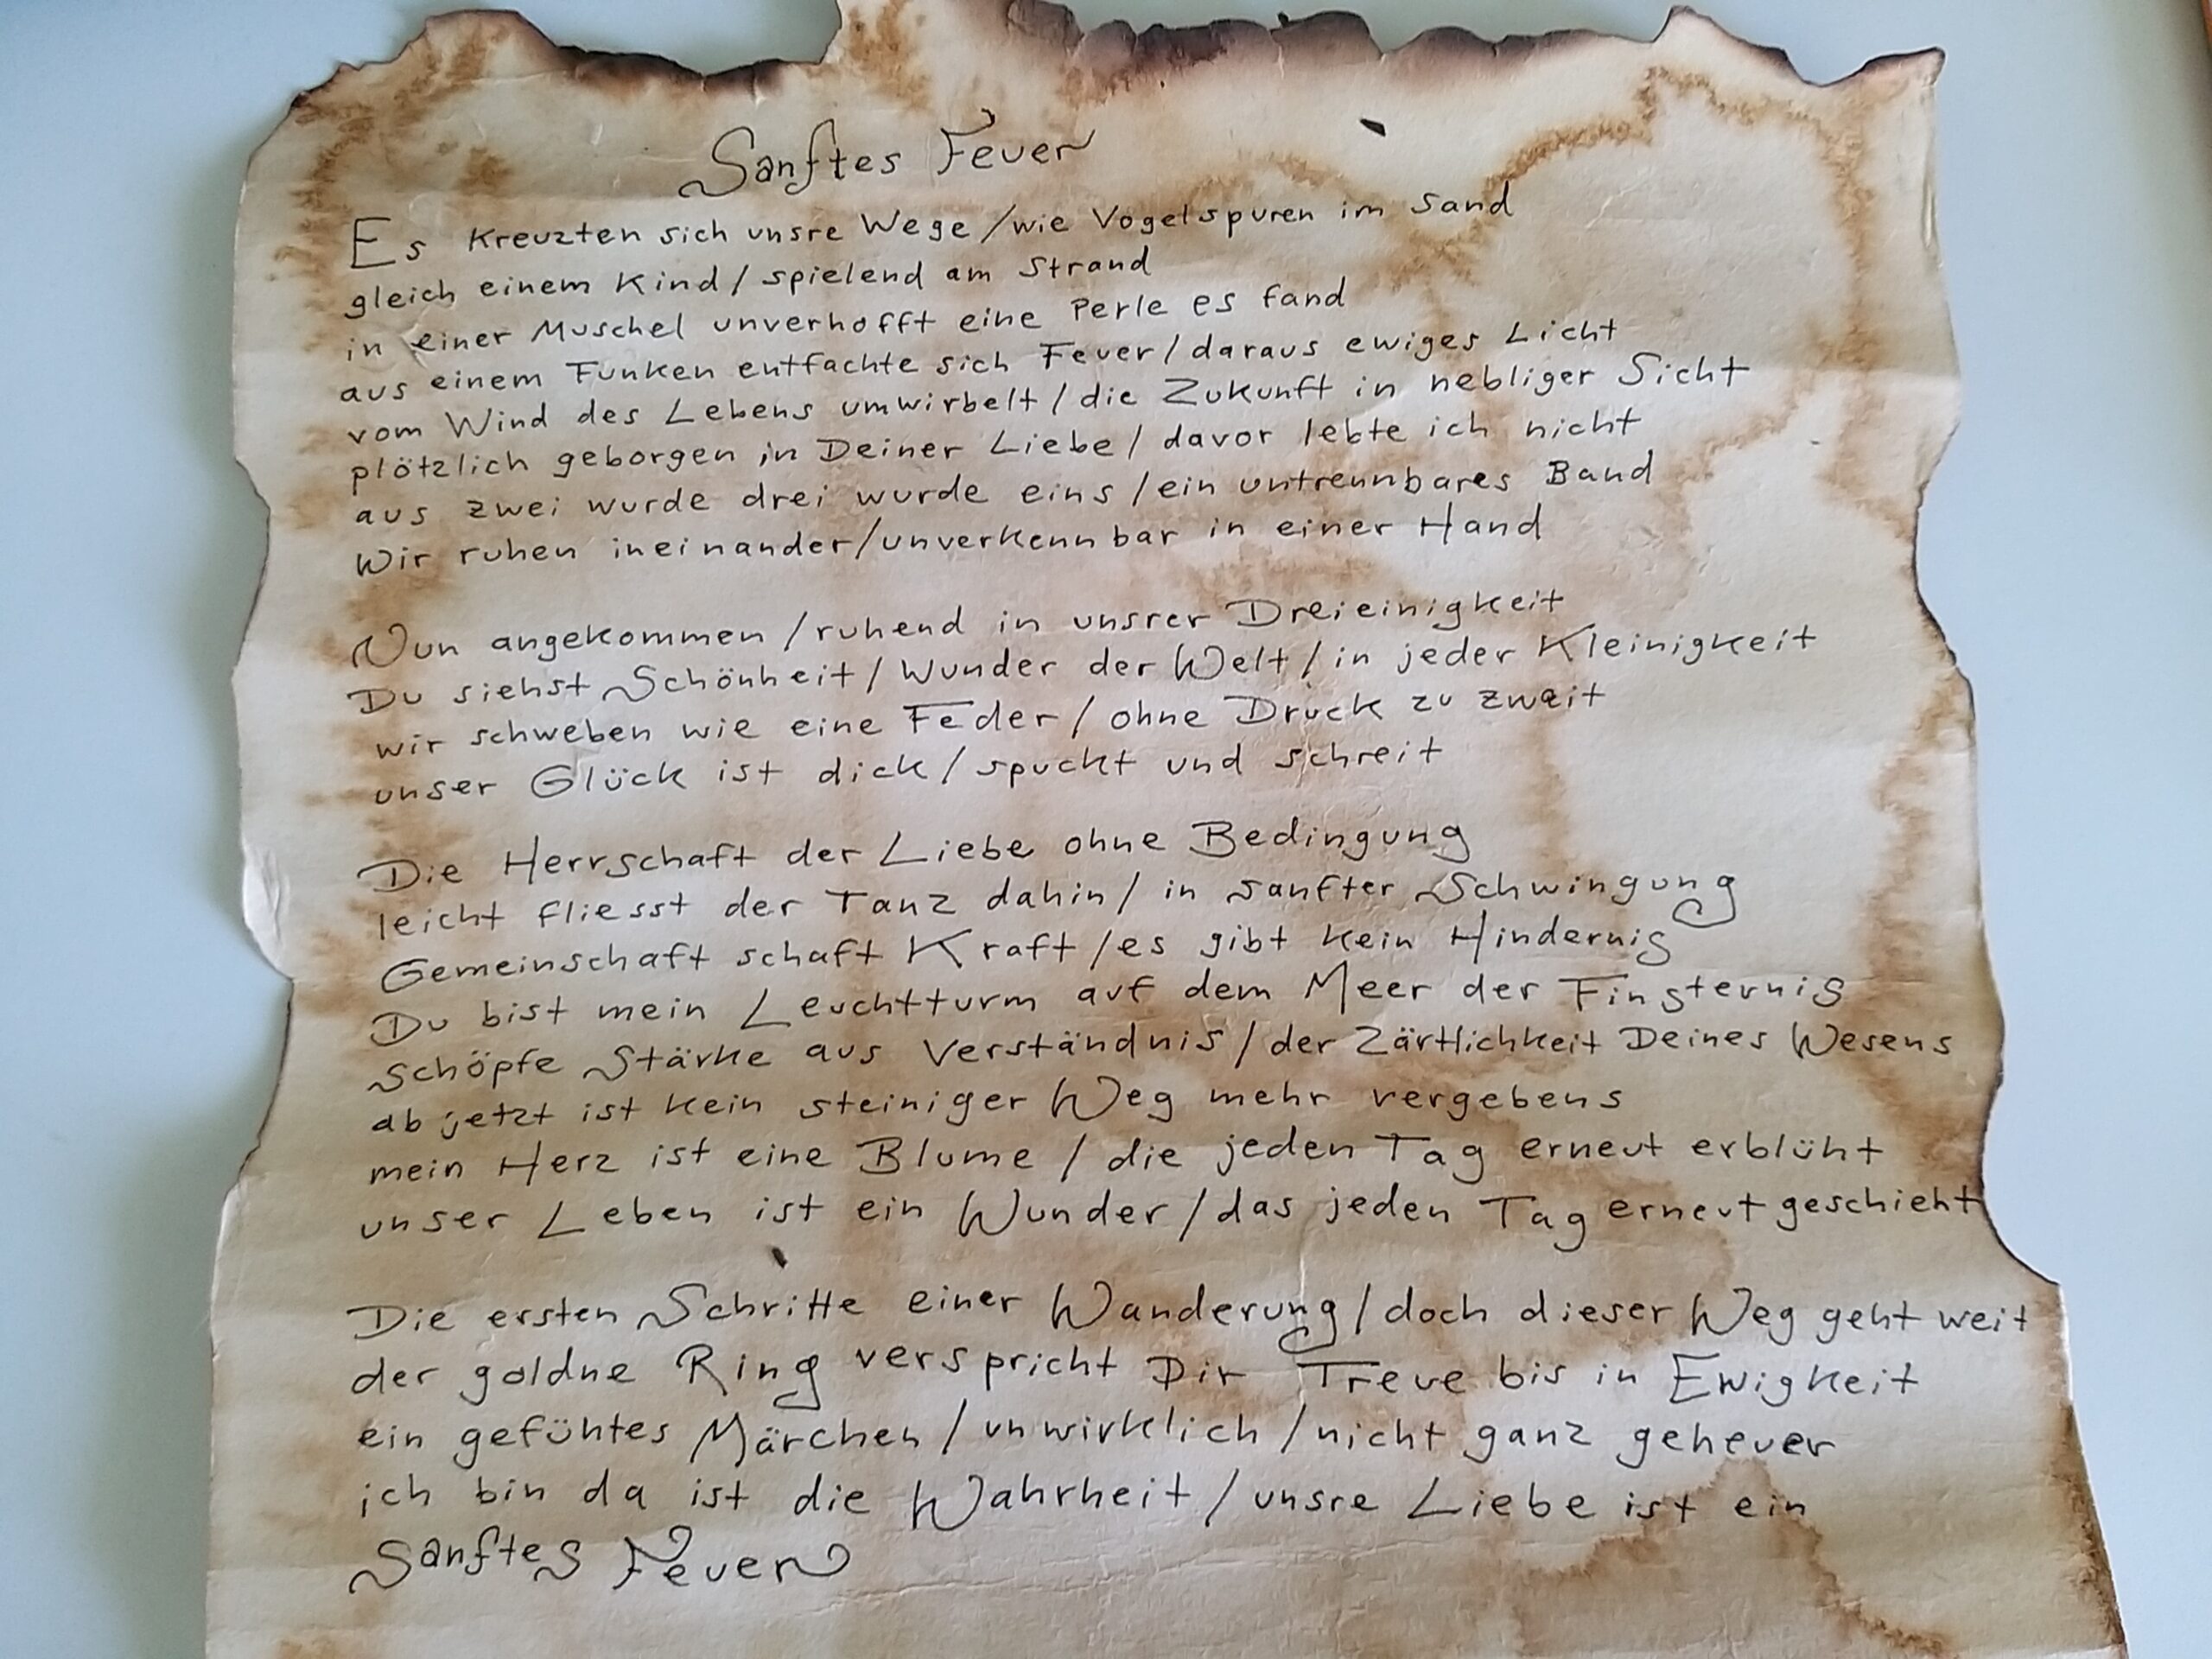 Sanftes Feuer
Es kreuzten sich unsre Wege / wie Vogelspuren im Sand
gleich einem Kind / spielend am Strand
in einer Muschel unverhofft eine Perle es fand
aus einem Funken entfachte sich Feuer / daraus ewiges Licht
vom Wind des Lebens umwirbelt / die Zukunft in nebliger Sicht
plötzlich geborgen in Deiner Liebe / davor lebte ich nicht
aus zwei wurde drei wurde eins / ein untrennbares Band
Wir ruhen ineinander / unverkennbar in einer Hand
Nun angekommen / ruhend in unsrer Dreieinigkeit
Du siehst Schönheit / Wunder der Welt / in jeder Kleinigkeit
wir schweben wie eine Feder / ohne Druck zu zweit
unser Glück ist dick / spuckt und schreit
Die Herrschaft der Liebe ohne Bedingung
leicht fliesst der Tanz dahin / in sanfter Schwingung
Gemeinschaft schaft Kraft / es gibt kein Hindernis
Du bist mein Leuchtturm auf dem Meer der Finsternis
Schöpfe Stärke aus Verständnis / der Zärtlichkeit Deines Wesens
ab jetzt ist kein steiniger Weg mehr vergebens
mein Herz ist eine Blume / die jeden Tag erneut erblüht
unser Leben ist ein Wunder / das jeden Tag erneut geschieht
Die ersten Schritte einer Wanderung / doch dieser Weg geht weit
der goldne Ring verspricht Dir Treue bis in Ewigkeit
ein gefühtes Märchen / unwirklich / nicht ganz geheuer
ich bin da ist die Wahrheit / unsre Liebe ist ein
Sanftes Feuer